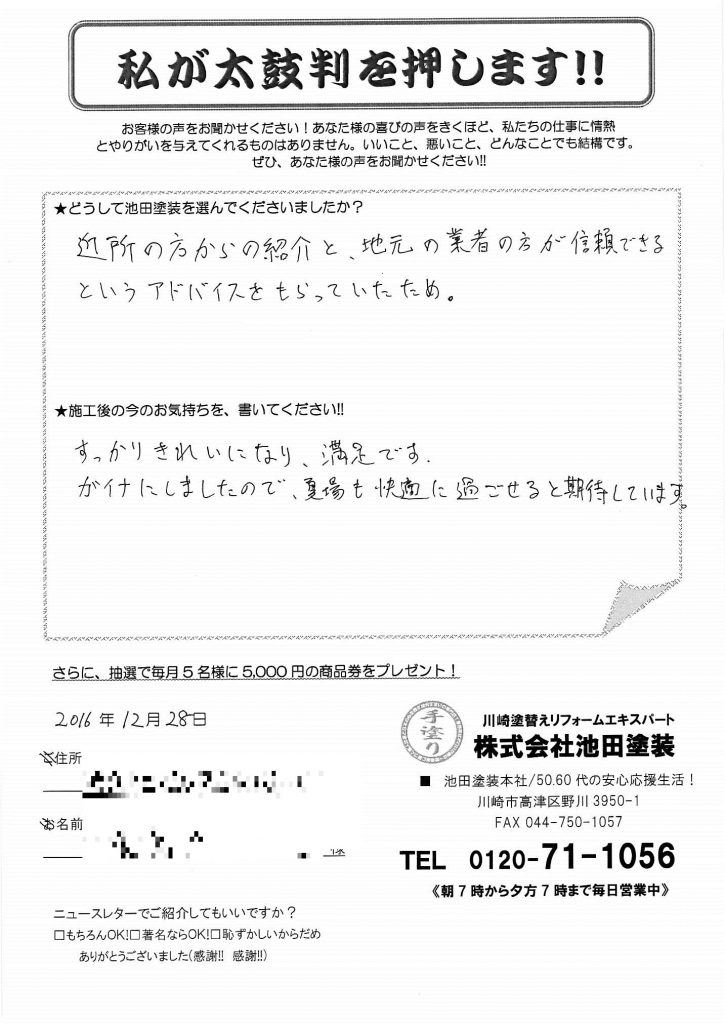 私が太鼓判を押します!!
お客様の声をお聞かせください！あなた様の喜びの声をきくほど、私たちの仕事に情熱
とやりがいを与えてくれるものはありません。いいこと、悪いこと、どんなことでも結構です。
ぜひ、あなた様の声をお聞かせください!!
★どうして池田塗装を選んでくださいましたか？
近所の方からの紹介と、地元の業者の方が信頼できる
というアドバイスをもらっていたため。
★施工後の今のお気持ちを、書いてください!!
すっかりきれいになり、満足です.
ガイナにしましたので、夏場も快適に過ごせると期待しています。
さらに、抽選で毎月5名様に5,000円の商品券をプレゼント！
2016年12月28日
ご住所
お名前
様
手塗り
川崎塗替えリフォームエキスパート
株式会社池田塗装
■ 池田塗装本社/50.60代の安心応援生活！
川崎市高津区野川3950-1
FAX 044-750-1057
TEL 0120-71-1056
《朝7時から夕方7時まで毎日営業中》
ニュースレターでご紹介してもいいですか？
□もちろんOK!□著名ならOK!□恥ずかしいからだめ
ありがとうございました(感謝!! 感謝!!)